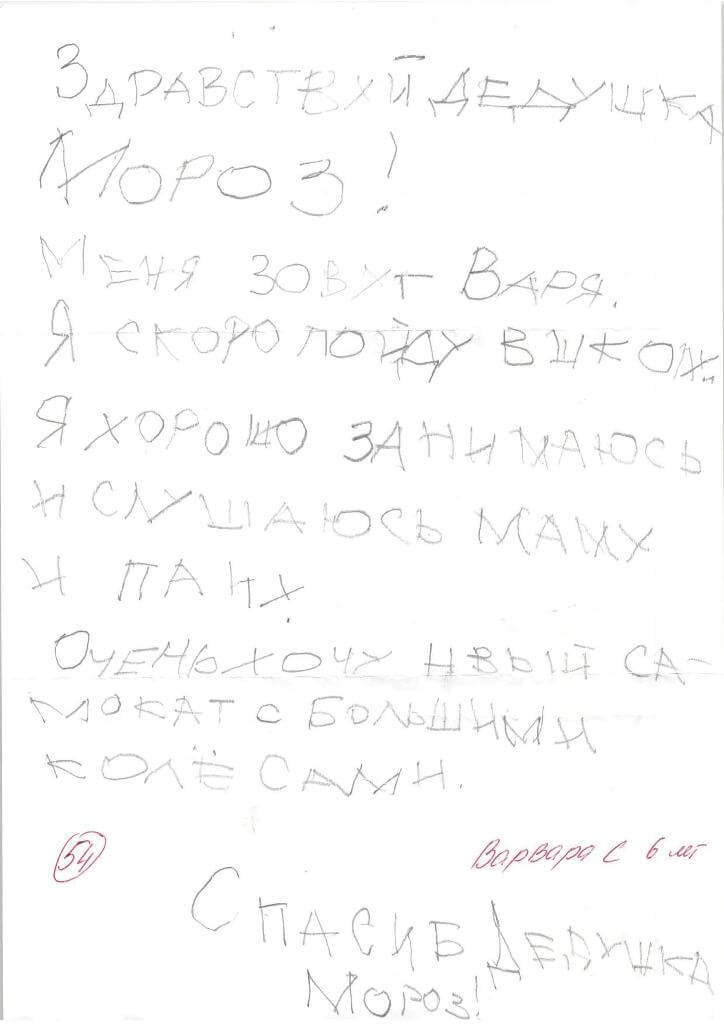 ЗДРАВСТВХЙ ДЕДУШКА
МОРОЗ!
МЕНЯ ЗОВУТ ВАРЯ.
Я СКОРО ПОЙДУ В ШКОЛХ.
Я ХОРОШО ЗАНИМАЮСЬ
И СЛУШАЮСЬ МАМУ
И ПАПХ.
ОЧЕНЬ ХОЧУ НВЫЙ СА-
МОКАТ С БОЛЬШИМИ
КОЛЁСАМИ.
54
Варвара С 6 лет
СПАСИБ ДЕДУШКА
МОРОЗ!